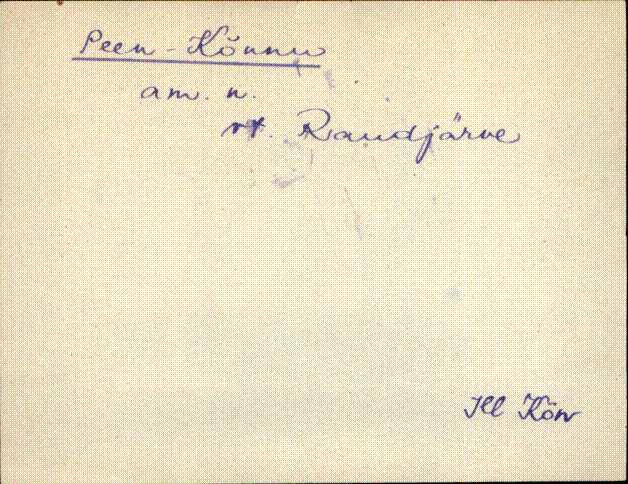 Peen-Kõnnu
am. n.
vt. Raudjärve
Kll Kõn